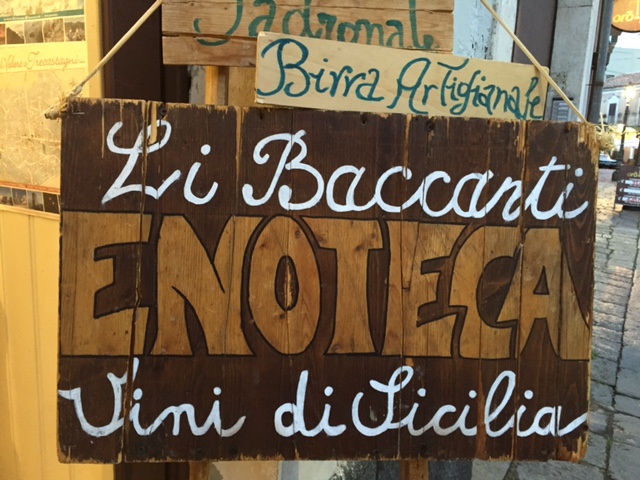 Padronale
Birra Artigianale
Li Baccanti
ENOTECA
Vini di Sicilia